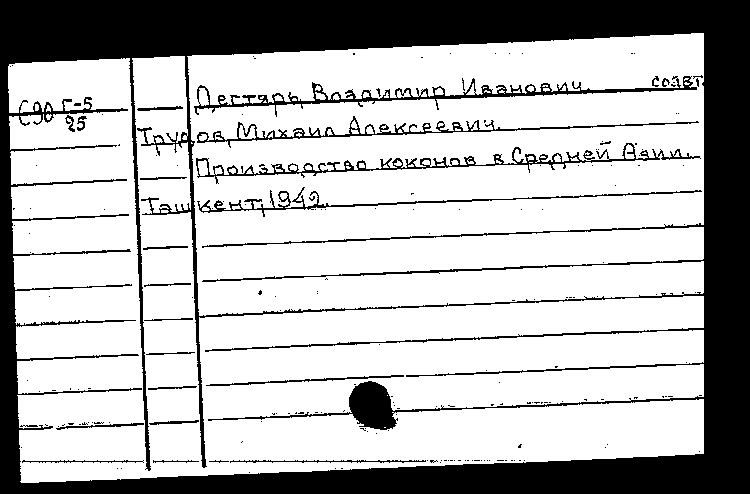 С90 Г-5/25
Дегтярь, Владимир Иванович. соавт.
Трудов, Михаил Алексеевич.
Производство коконов в Средней Азии.
Ташкент, 1942.